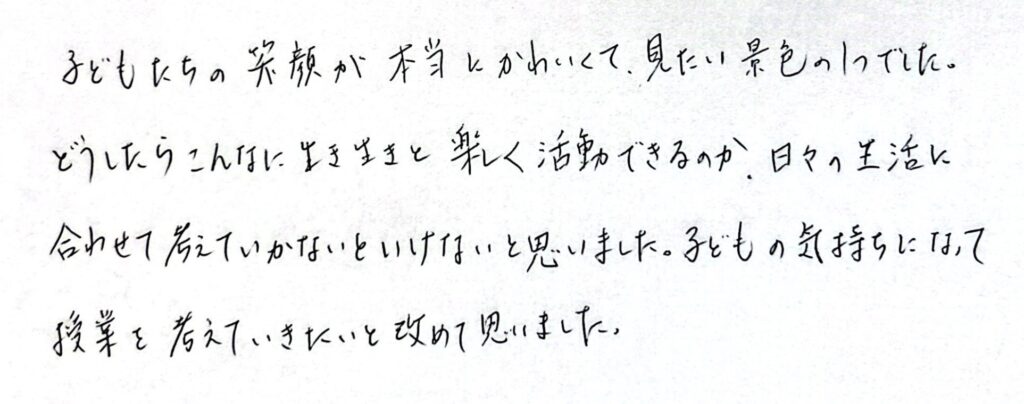 子どもたちの笑顔が本当にかわいくて、見たい景色の1つでした。
どうしたらこんなに生き生きと楽しく活動できるのか、日々の生活に
合わせて考えていかないといけないと思いました。子どもの気持ちになって
授業を考えていきたいと改めて思いました。